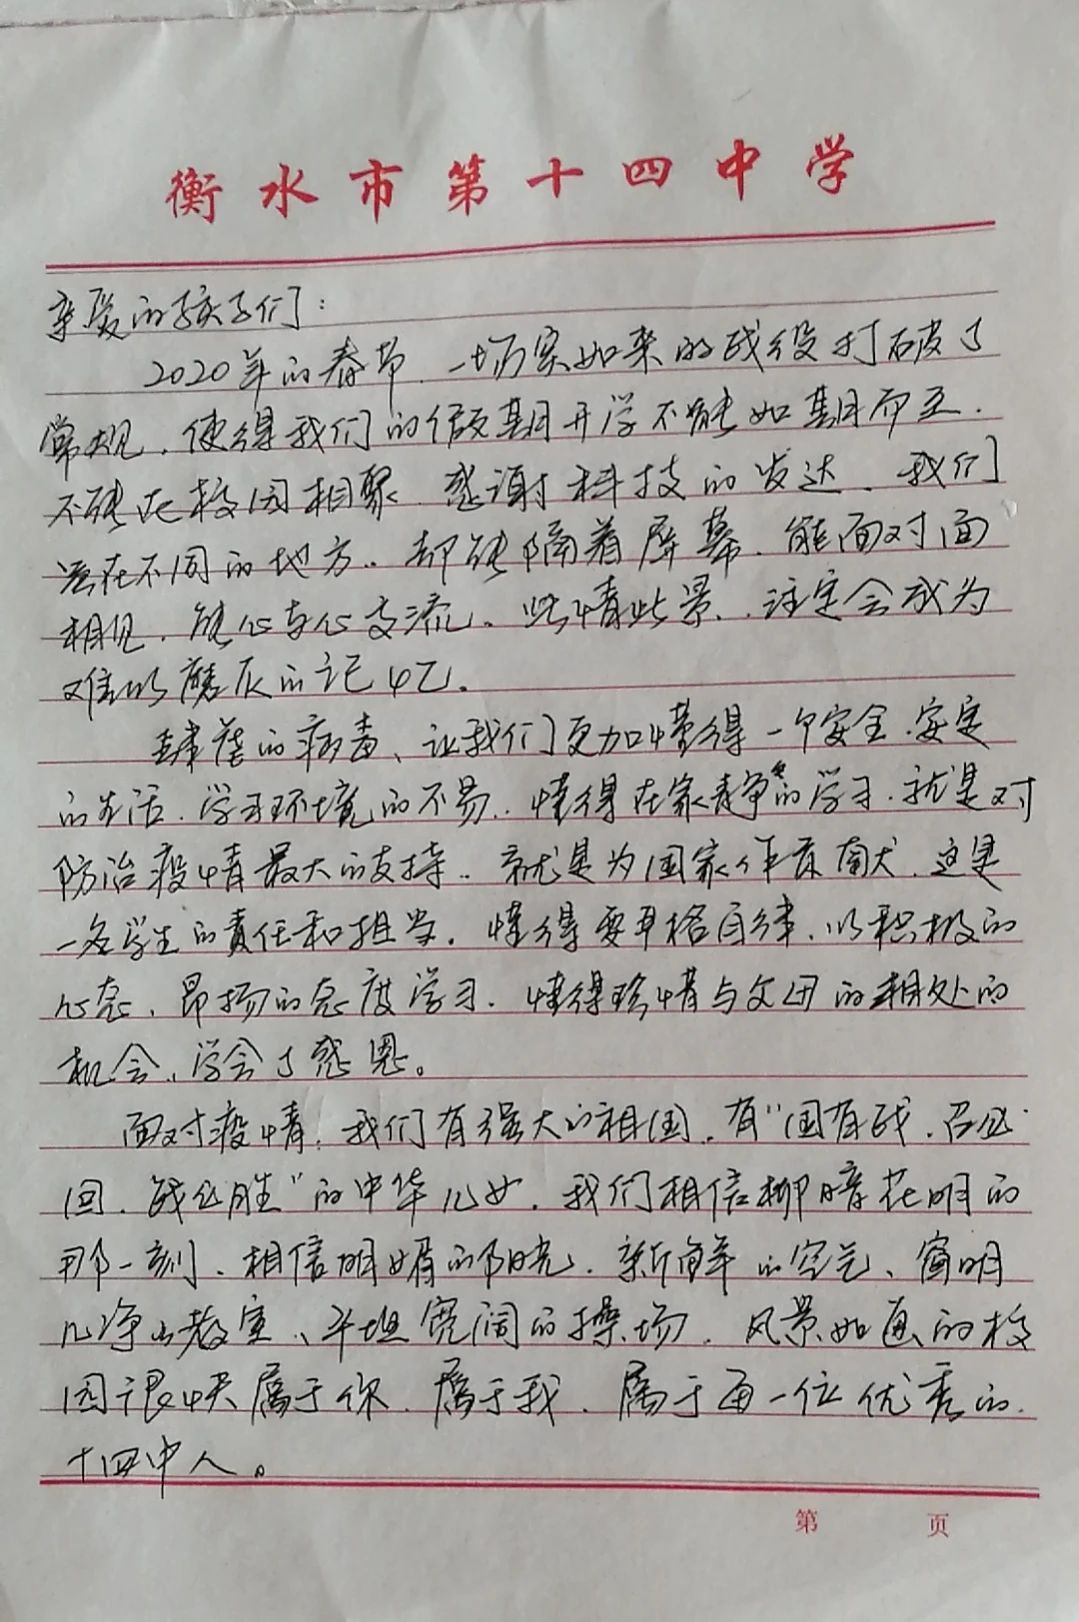 衡水市第十四中学
亲爱的孩子们：
2020年的春节，一场突如来的战役打破了
常规，使得我们的假期开学不能如期而至，
不能在校园相聚，感谢科技的发达，我们
在不同的地方，却能隔着屏幕，能面对面
相见，能心与心交流。此情此景，注定会成为
难以磨灭的记忆。
肆虐的病毒、让我们更加懂得一个安全、安定
的生活、学习环境的不易，懂得在家静静的学习，就是对
防治疫情最大的支持，就是为国家作贡献，这是
一名学生的责任和担当。懂得要严格自律，以积极的
心态、昂扬的态度学习，懂得珍惜与父母的相处的
机会、学会了感恩。
面对疫情，我们有强大的祖国，有“国有战，召必
回，战必胜”的中华儿女，我们相信柳暗花明的
那一刻、相信明媚的阳光、新鲜的空气、窗明
几净的教室、平坦宽阔的操场，风景如画的校
园很快属于你，属于我，属于每一位优秀的
十四中人。
第 页